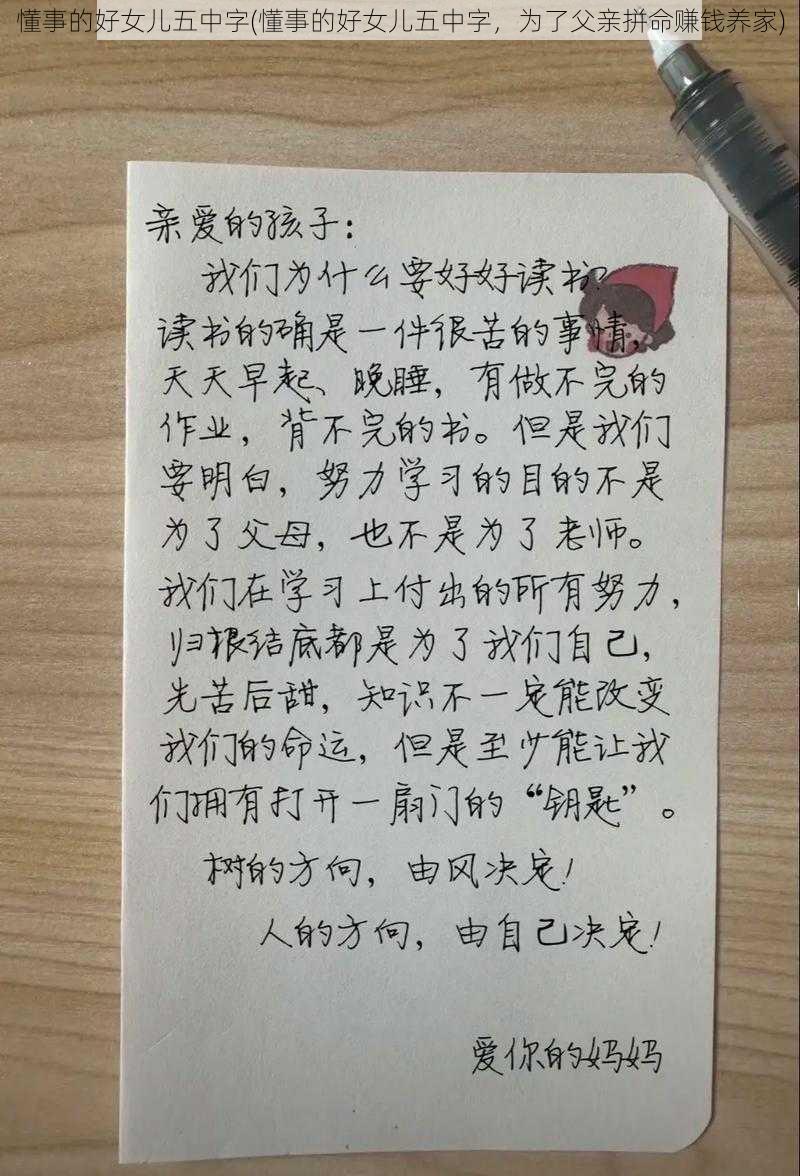 懂事的好女儿五中字(懂事的好女儿五中字，为了父亲拼命赚钱养家)
亲爱的孩子：
我们为什么要好好读书？
读书的确是一件很苦的事情，
天天早起、晚睡，有做不完的
作业，背不完的书。但是我们
要明白，努力学习的目的不是
为了父母，也不是为了老师。
我们在学习上付出的所有努力，
归根结底都是为了我们自己，
先苦后甜，知识不一定能改变
我们的命运，但是至少能让我
们拥有打开一扇门的“钥匙”。
树的方向，由风决定！
人的方向，由自己决定！
爱你的妈妈